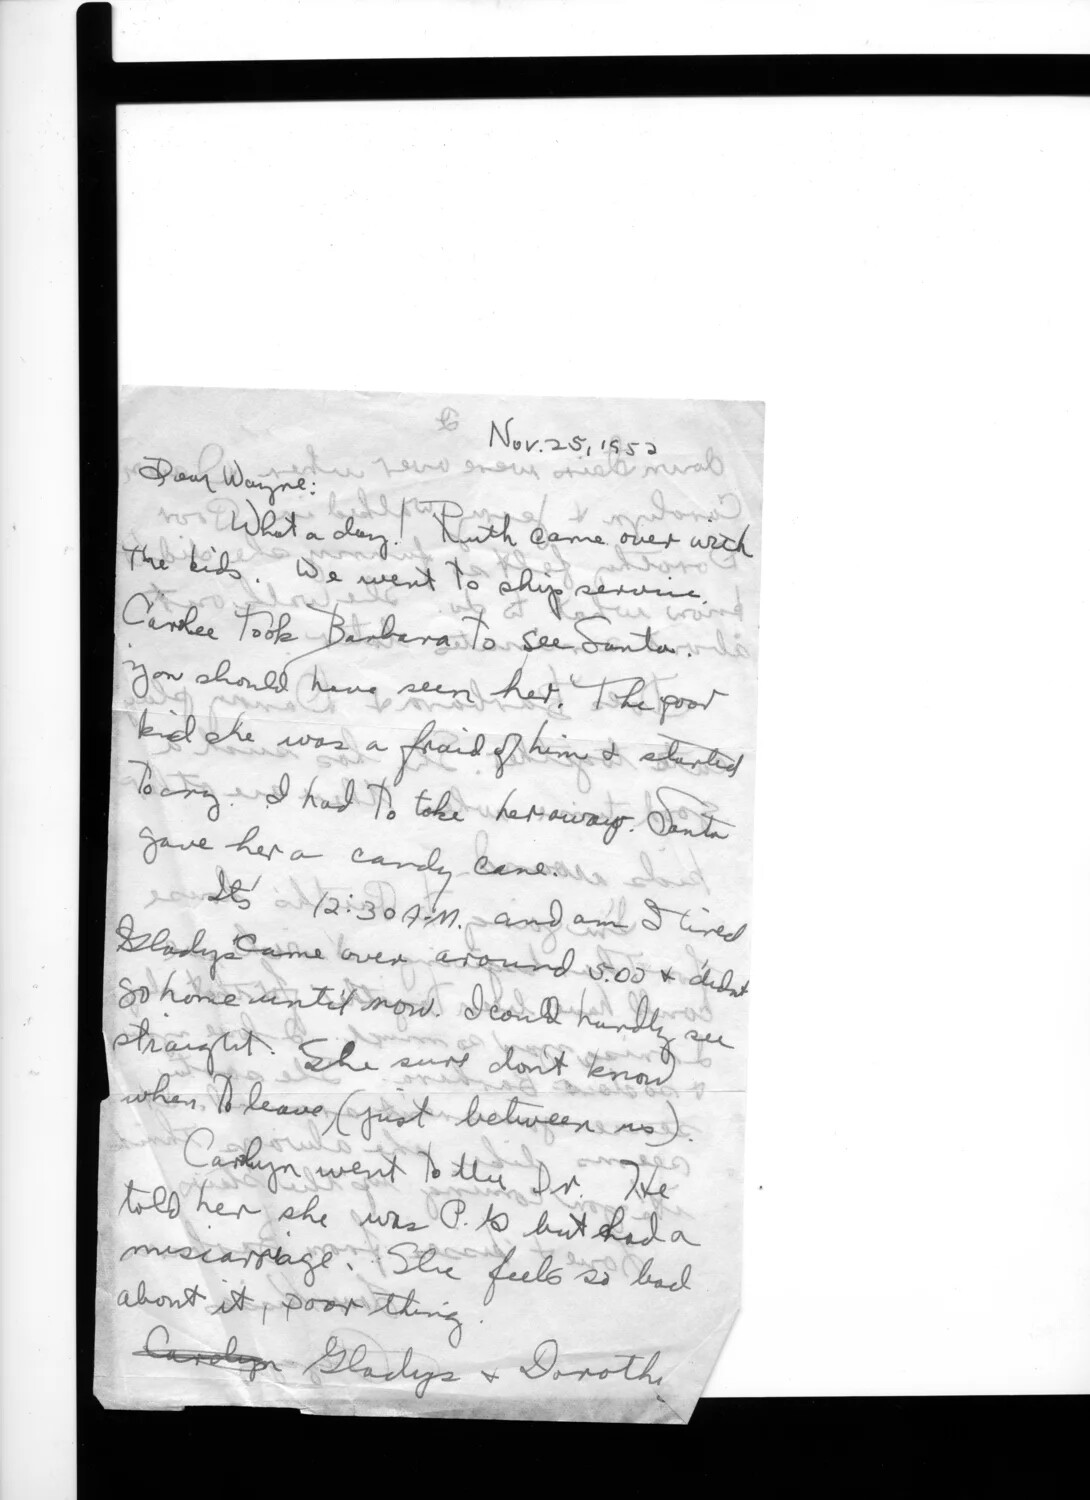 Nov. 25, 1952
Dear Wayne:
What a day! Ruth came over with
the kids. We went to ship service.
Carlee took Barbara to see Santa.
You should have seen her. The poor
kid she was a fraid of him & started
to cry. I had to take her away. Santa
gave her a candy cane.
It's 12:30 A.M. and am I tired
Gladys came over around 5:00 & didn't
go home until now. I could hardly see
straight. She sure don't know
when to leave (just between us).
Carolyn went to the Dr. He
told her she was P.G but had a
miscarriage. She feels so bad
about it, poor thing.
Carolyn Gladys & Doroth